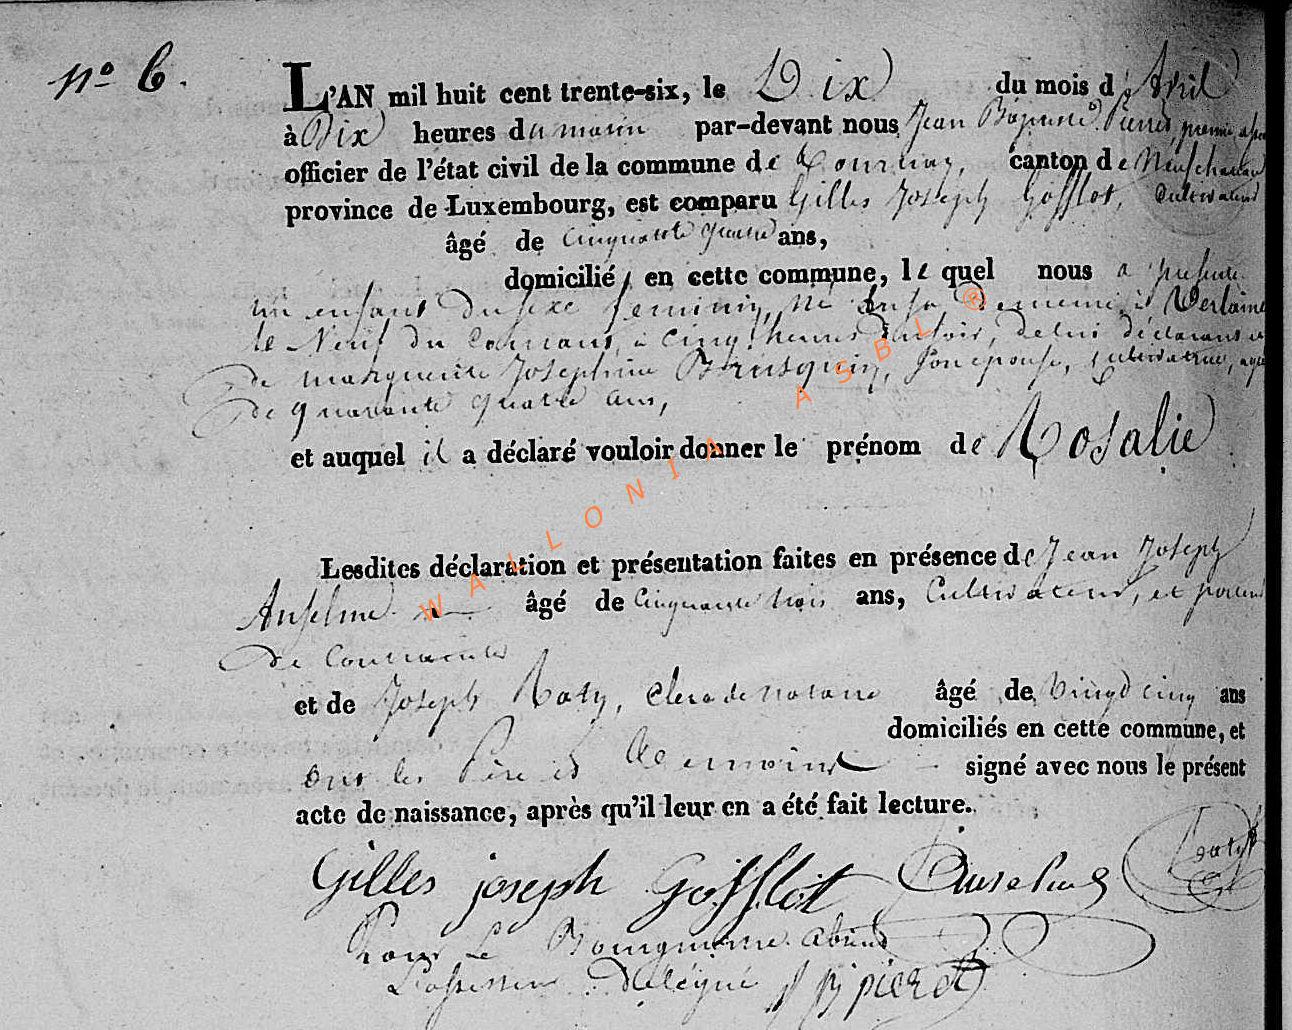 nº 6.
L'AN mil huit cent trente-six, le Dix du mois d'Avril
à Dix heures du matin par-devant nous Jean Baptiste Pierret premier
officier de l'état civil de la commune de Tournay, canton de Neufchateau
province de Luxembourg, est comparu Gilles Joseph Gofflot, Cultivateur
âgé de cinquante quatre ans,
domicilié en cette commune, lequel nous a présenté
un enfant du sexe feminin, né en sa Demeure à Verlaine
le Neuf du Courant, à cinq heures du soir, de lui déclarant et
de marguerite Josephine Brusquin, son epouse, cultivatrice, agée
de quarante quatre ans,
et auquel il a déclaré vouloir donner le prénom de Rosalie
Lesdites déclaration et présentation faites en présence de Jean Joseph
Anselme âgé de Cinquante trois ans, Cultivateur, et porteur
de Contraintes
et de Joseph Roty, clerc de notaire âgé de vingt cinq ans
domiciliés en cette commune, et
ont les Père et témoins signé avec nous le présent
acte de naissance, après qu'il leur en a été fait lecture.
Gilles joseph Gofflot Anselme
Pour Le Bourgmestre absent
L'assesseur Délégué J B pierret
WALLONIA ASBL ®